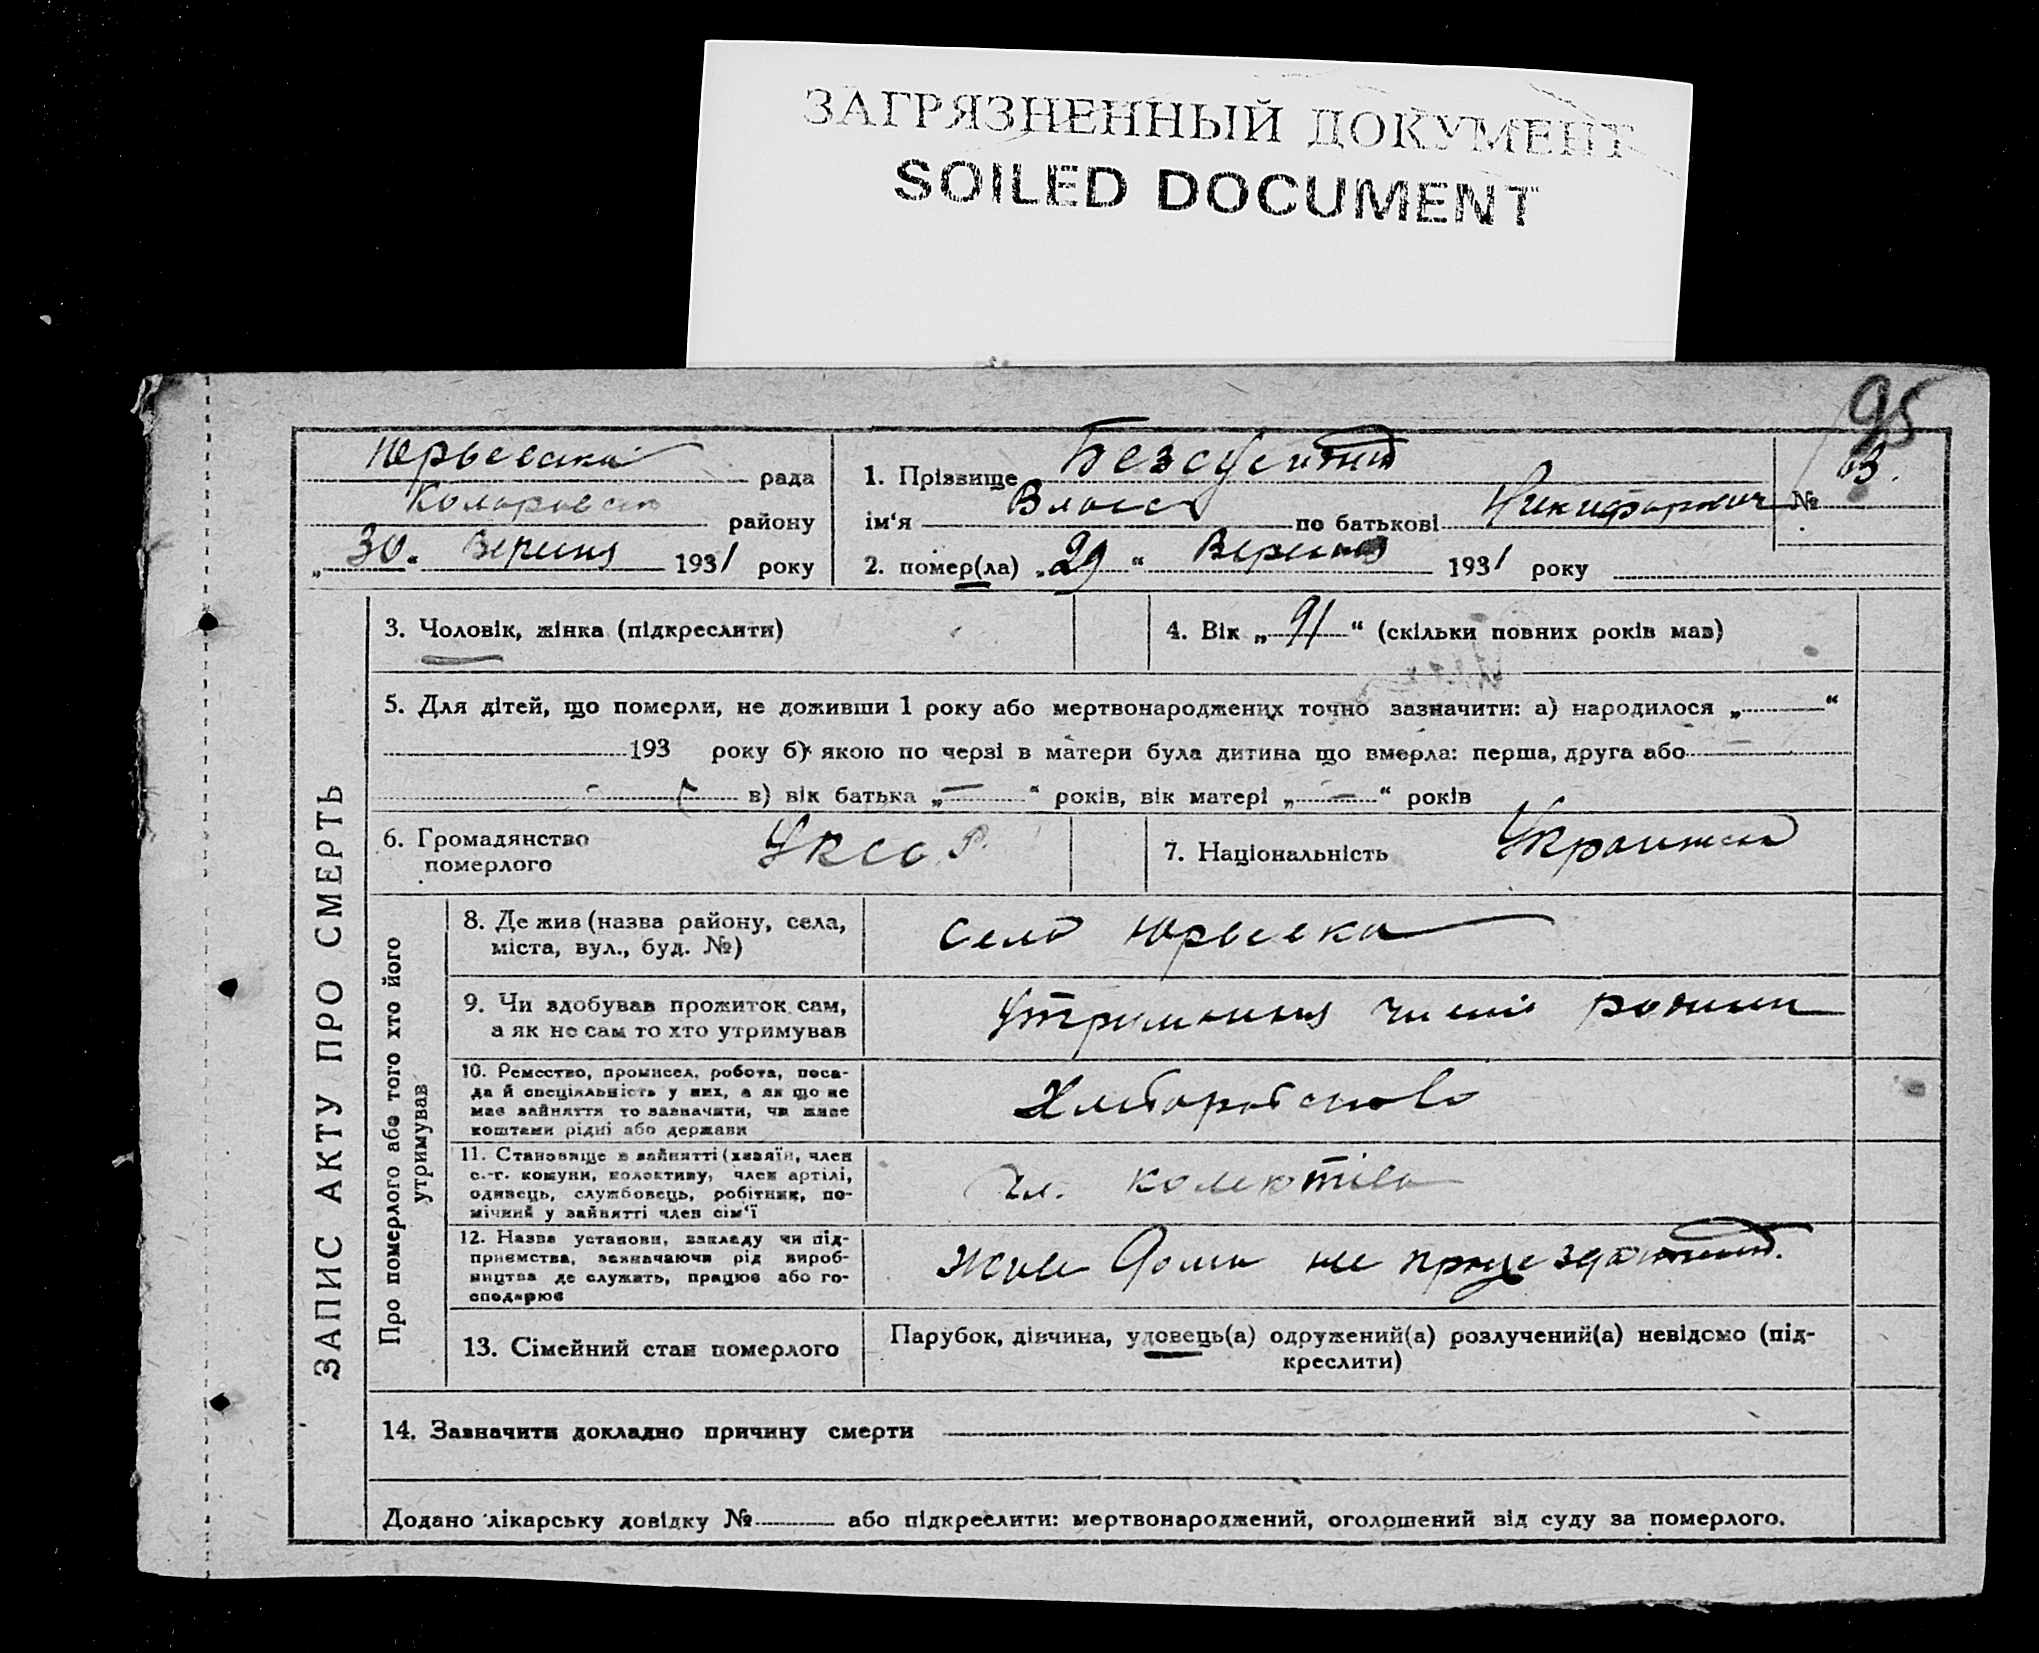 ЗАГРЯЗНЕННЫЙ ДОКУМЕНТ
SOILED DOCUMENT
95
Юрьевська рада
району
„30“ Вересня 1931 року
1. Прізвище
ім‘я Власс по батькові Никифорович
№ 63.
2. помер(ла) „29“ Вересня 1931 року
ЗАПИС АКТУ ПРО СМЕРТЬ
3. Чоловік, жінка (підкреслити)
4. Вік „91“ (скільки повних років мав)
5. Для дітей, що померли, не доживши 1 року або мертвонароджених точно зазначити: а) народилося „ “
193 року б) якою по черзі в матери була дитина що вмерла: перша, друга або —
в) вік батька „—“ років, вік матері „—“ років
6. Громадянство
померлого
УРСР
7. Національність Украинец
Про померлого або того хто його
утримував
8. Де жив (назва району, села,
міста, вул., буд. №)
село Юрьевка
9. Чи здобував прожиток сам,
а як не сам то хто утримував
Утримання членів родини
10. Ремество, промисел, робота, поса-
да й спеціяльність у них, а як що не
має зайняття то зазначити, чи живе
коштами рідні або держави
Хліборобство
11. Становище в зайнятті (хазяїн, член
с.-г. комуни, колективу, член артілі,
одинець, службовець, робітник, по-
мічний у зайнятті член сім‘ї
чл. колективу
12. Назва установи, закладу чи під-
приємства, зазначаючи рід вироб-
ництва де служить, працює або го-
сподарює
Живе дома не працездатний.
13. Сімейний стан померлого
Парубок, дівчина, удовець(а) одружений(а) розлучений(а) невідомо (під-
креслити)
14. Зазначити докладно причину смерти
Додано лікарську довідку № або підкреслити: мертвонароджений, оголошений від суду за померлого.